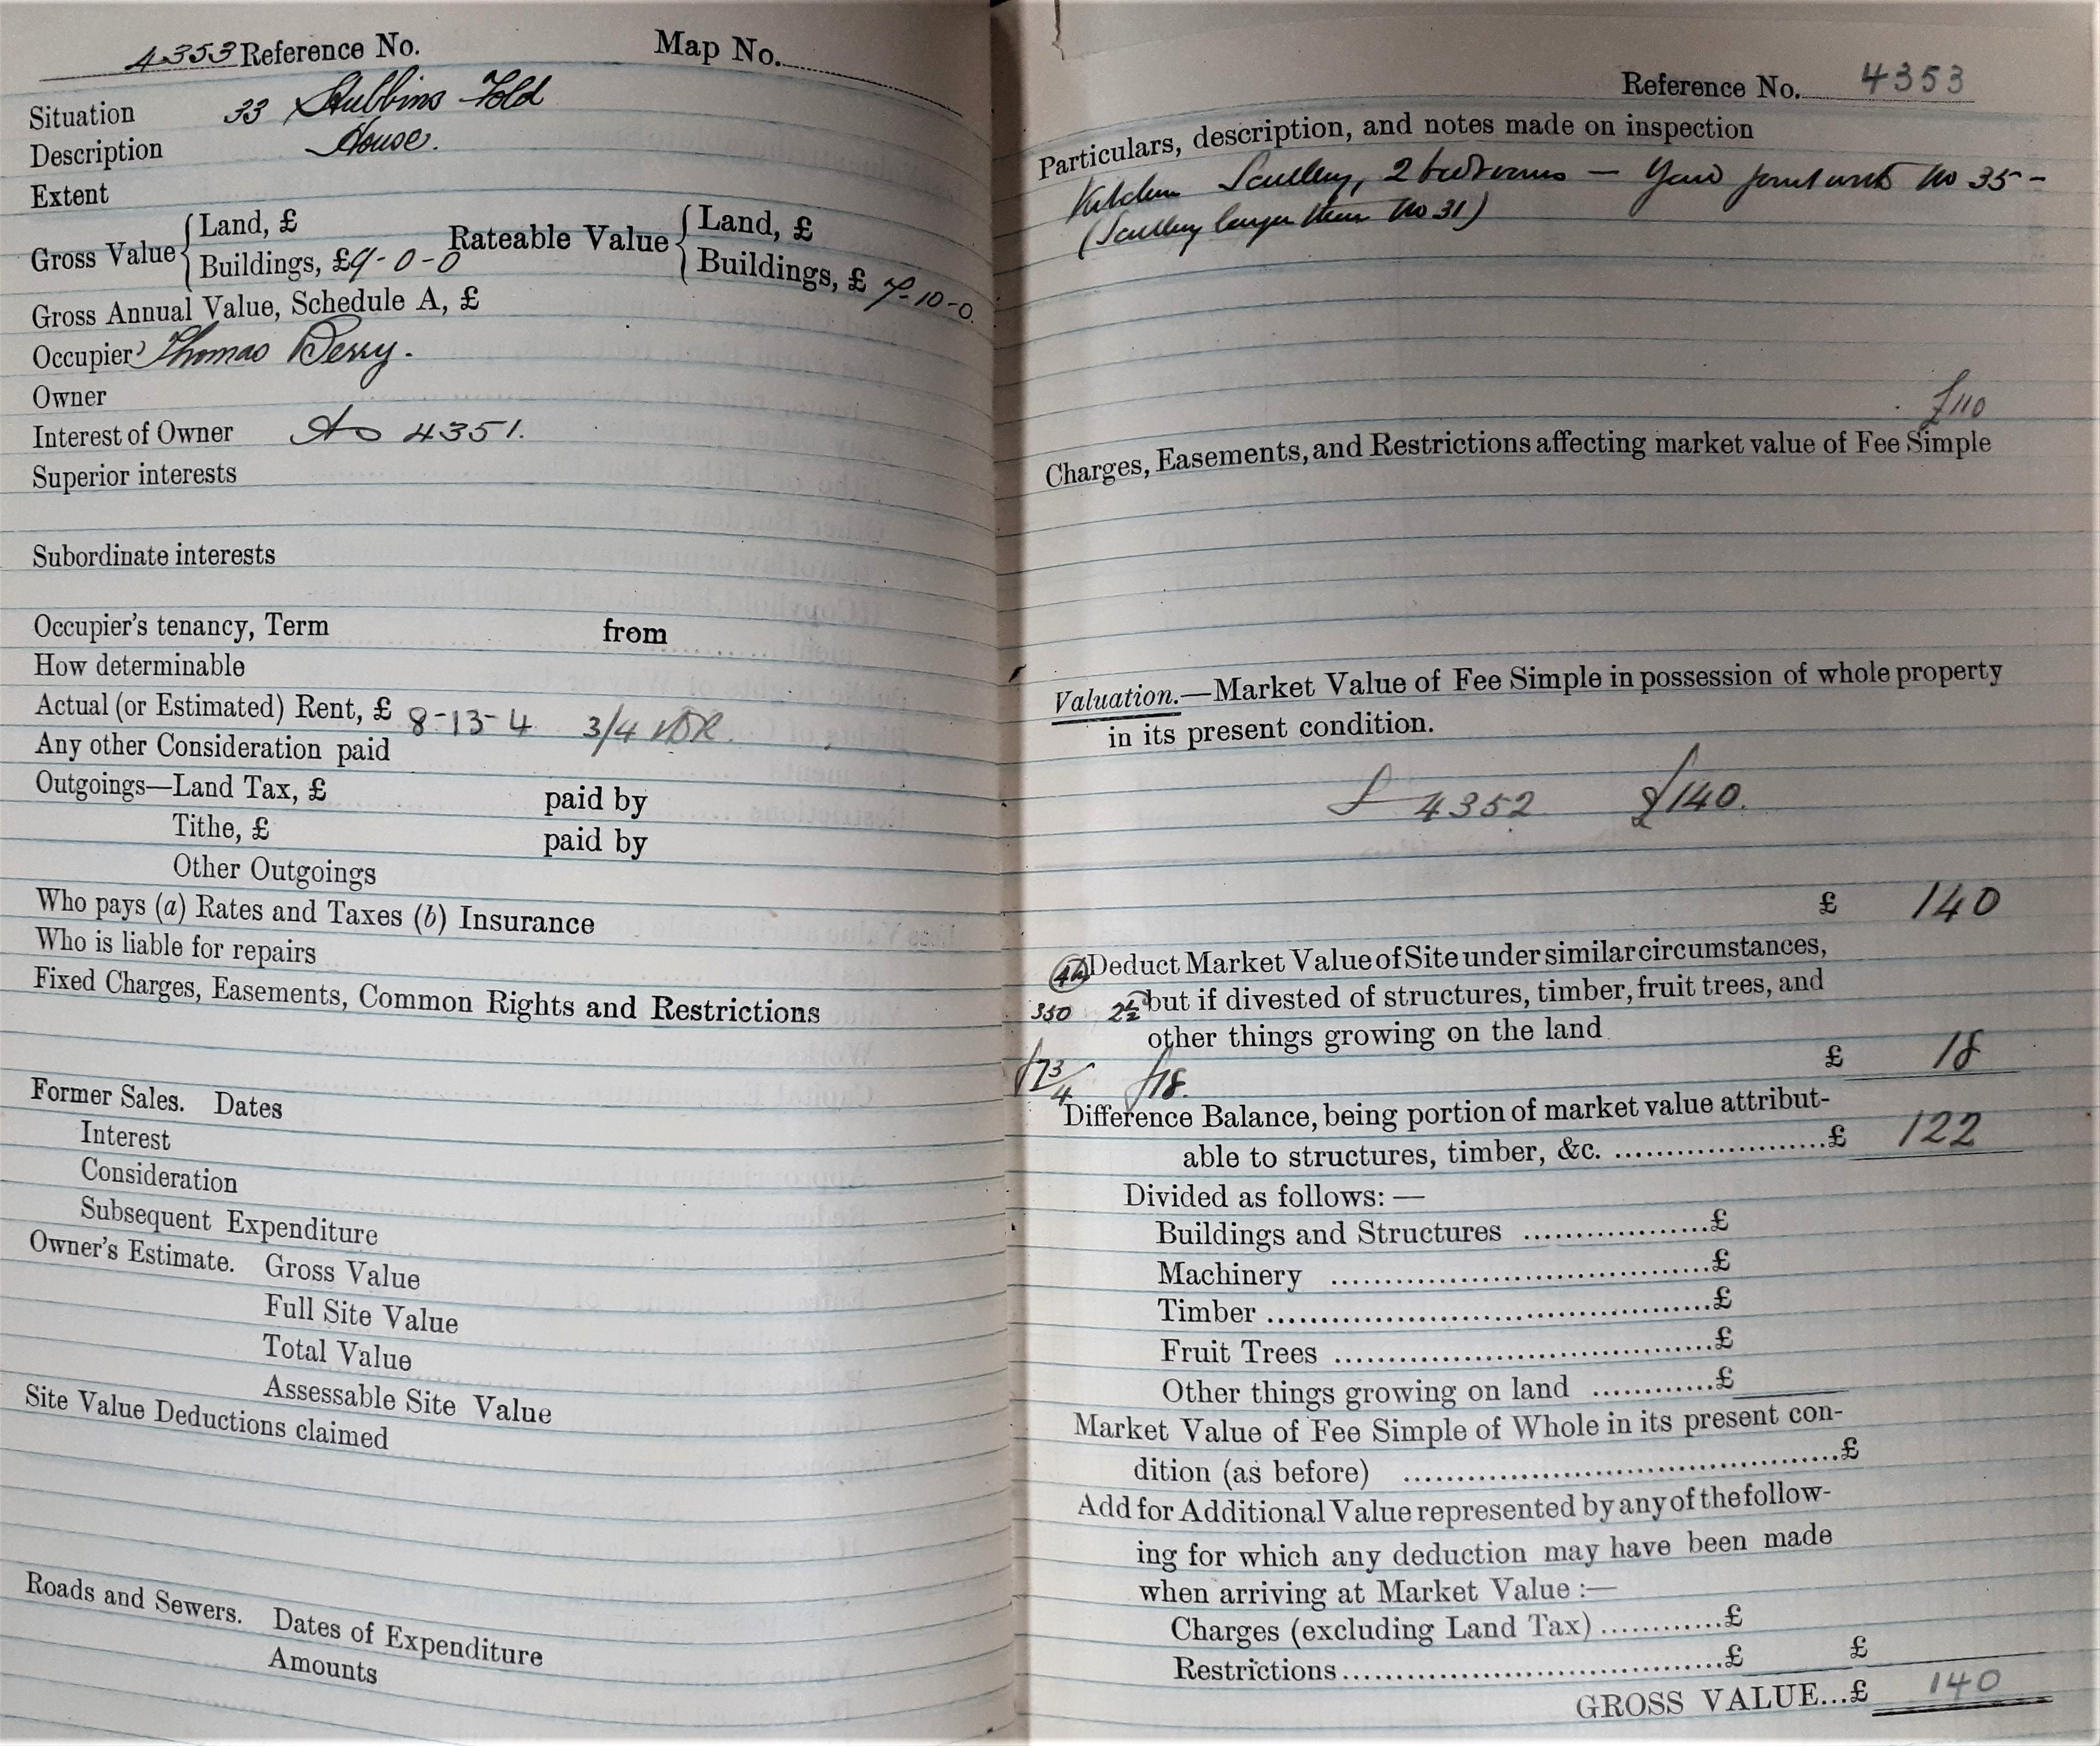 4353 Reference No. Map No.
Situation 33 Stubbins Fold
Description House.
Extent
Gross Value { Land, £ Rateable Value { Land, £
Buildings, £9-0-0 Buildings, £ 7-10-0.
Gross Annual Value, Schedule A, £
Occupier Thomas Berry.
Owner
Interest of Owner As 4351.
Superior interests
Subordinate interests
Occupier's tenancy, Term from
How determinable
Actual (or Estimated) Rent, £ 8-13-4 3/4
Any other Consideration paid
Outgoings—Land Tax, £ paid by
Tithe, £ paid by
Other Outgoings
Who pays (a) Rates and Taxes (b) Insurance
Who is liable for repairs
Fixed Charges, Easements, Common Rights and Restrictions
Former Sales. Dates
Interest
Consideration
Subsequent Expenditure
Owner's Estimate. Gross Value
Full Site Value
Total Value
Assessable Site Value
Site Value Deductions claimed
Roads and Sewers. Dates of Expenditure
Amounts
Reference No. 4353
Particulars, description, and notes made on inspection
Kitchen Scullery, 2 bedrooms — Yard joint with No 35 -
(Scullery larger than No 31)
£110
Charges, Easements, and Restrictions affecting market value of Fee Simple
Valuation.—Market Value of Fee Simple in possession of whole property
in its present condition.
4352 £140.
£ 140
Deduct Market Value of Site under similar circumstances,
350 2½ but if divested of structures, timber, fruit trees, and
other things growing on the land
£ 18
£18.
Difference Balance, being portion of market value attribut-
able to structures, timber, &c. ....................£ 122
Divided as follows: —
Buildings and Structures .................£
Machinery ....................................£
Timber ..........................................£
Fruit Trees ...................................£
Other things growing on land ............£
Market Value of Fee Simple of Whole in its present con-
dition (as before) .........................................£
Add for Additional Value represented by any of the follow-
ing for which any deduction may have been made
when arriving at Market Value :—
Charges (excluding Land Tax) ............£
Restrictions ....................................£ £
GROSS VALUE...£ 140